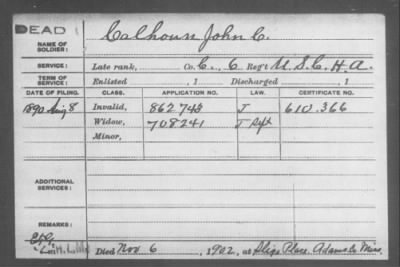 DEAD
NAME OF SOLDIER: Calhoun John C.
SERVICE: Late rank, Co. C., 6 Reg't U.S.C.H.A.
TERM OF SERVICE: Enlisted , 1 Discharged , 1
DATE OF FILING. CLASS. APPLICATION NO. LAW. CERTIFICATE NO.
1890 Aug 8 Invalid, 862745 J 610.366
Widow, 708241 J
Minor,
ADDITIONAL SERVICES:
REMARKS:
Died Nov. 6, 1902, at Place. Adams Co Miss.